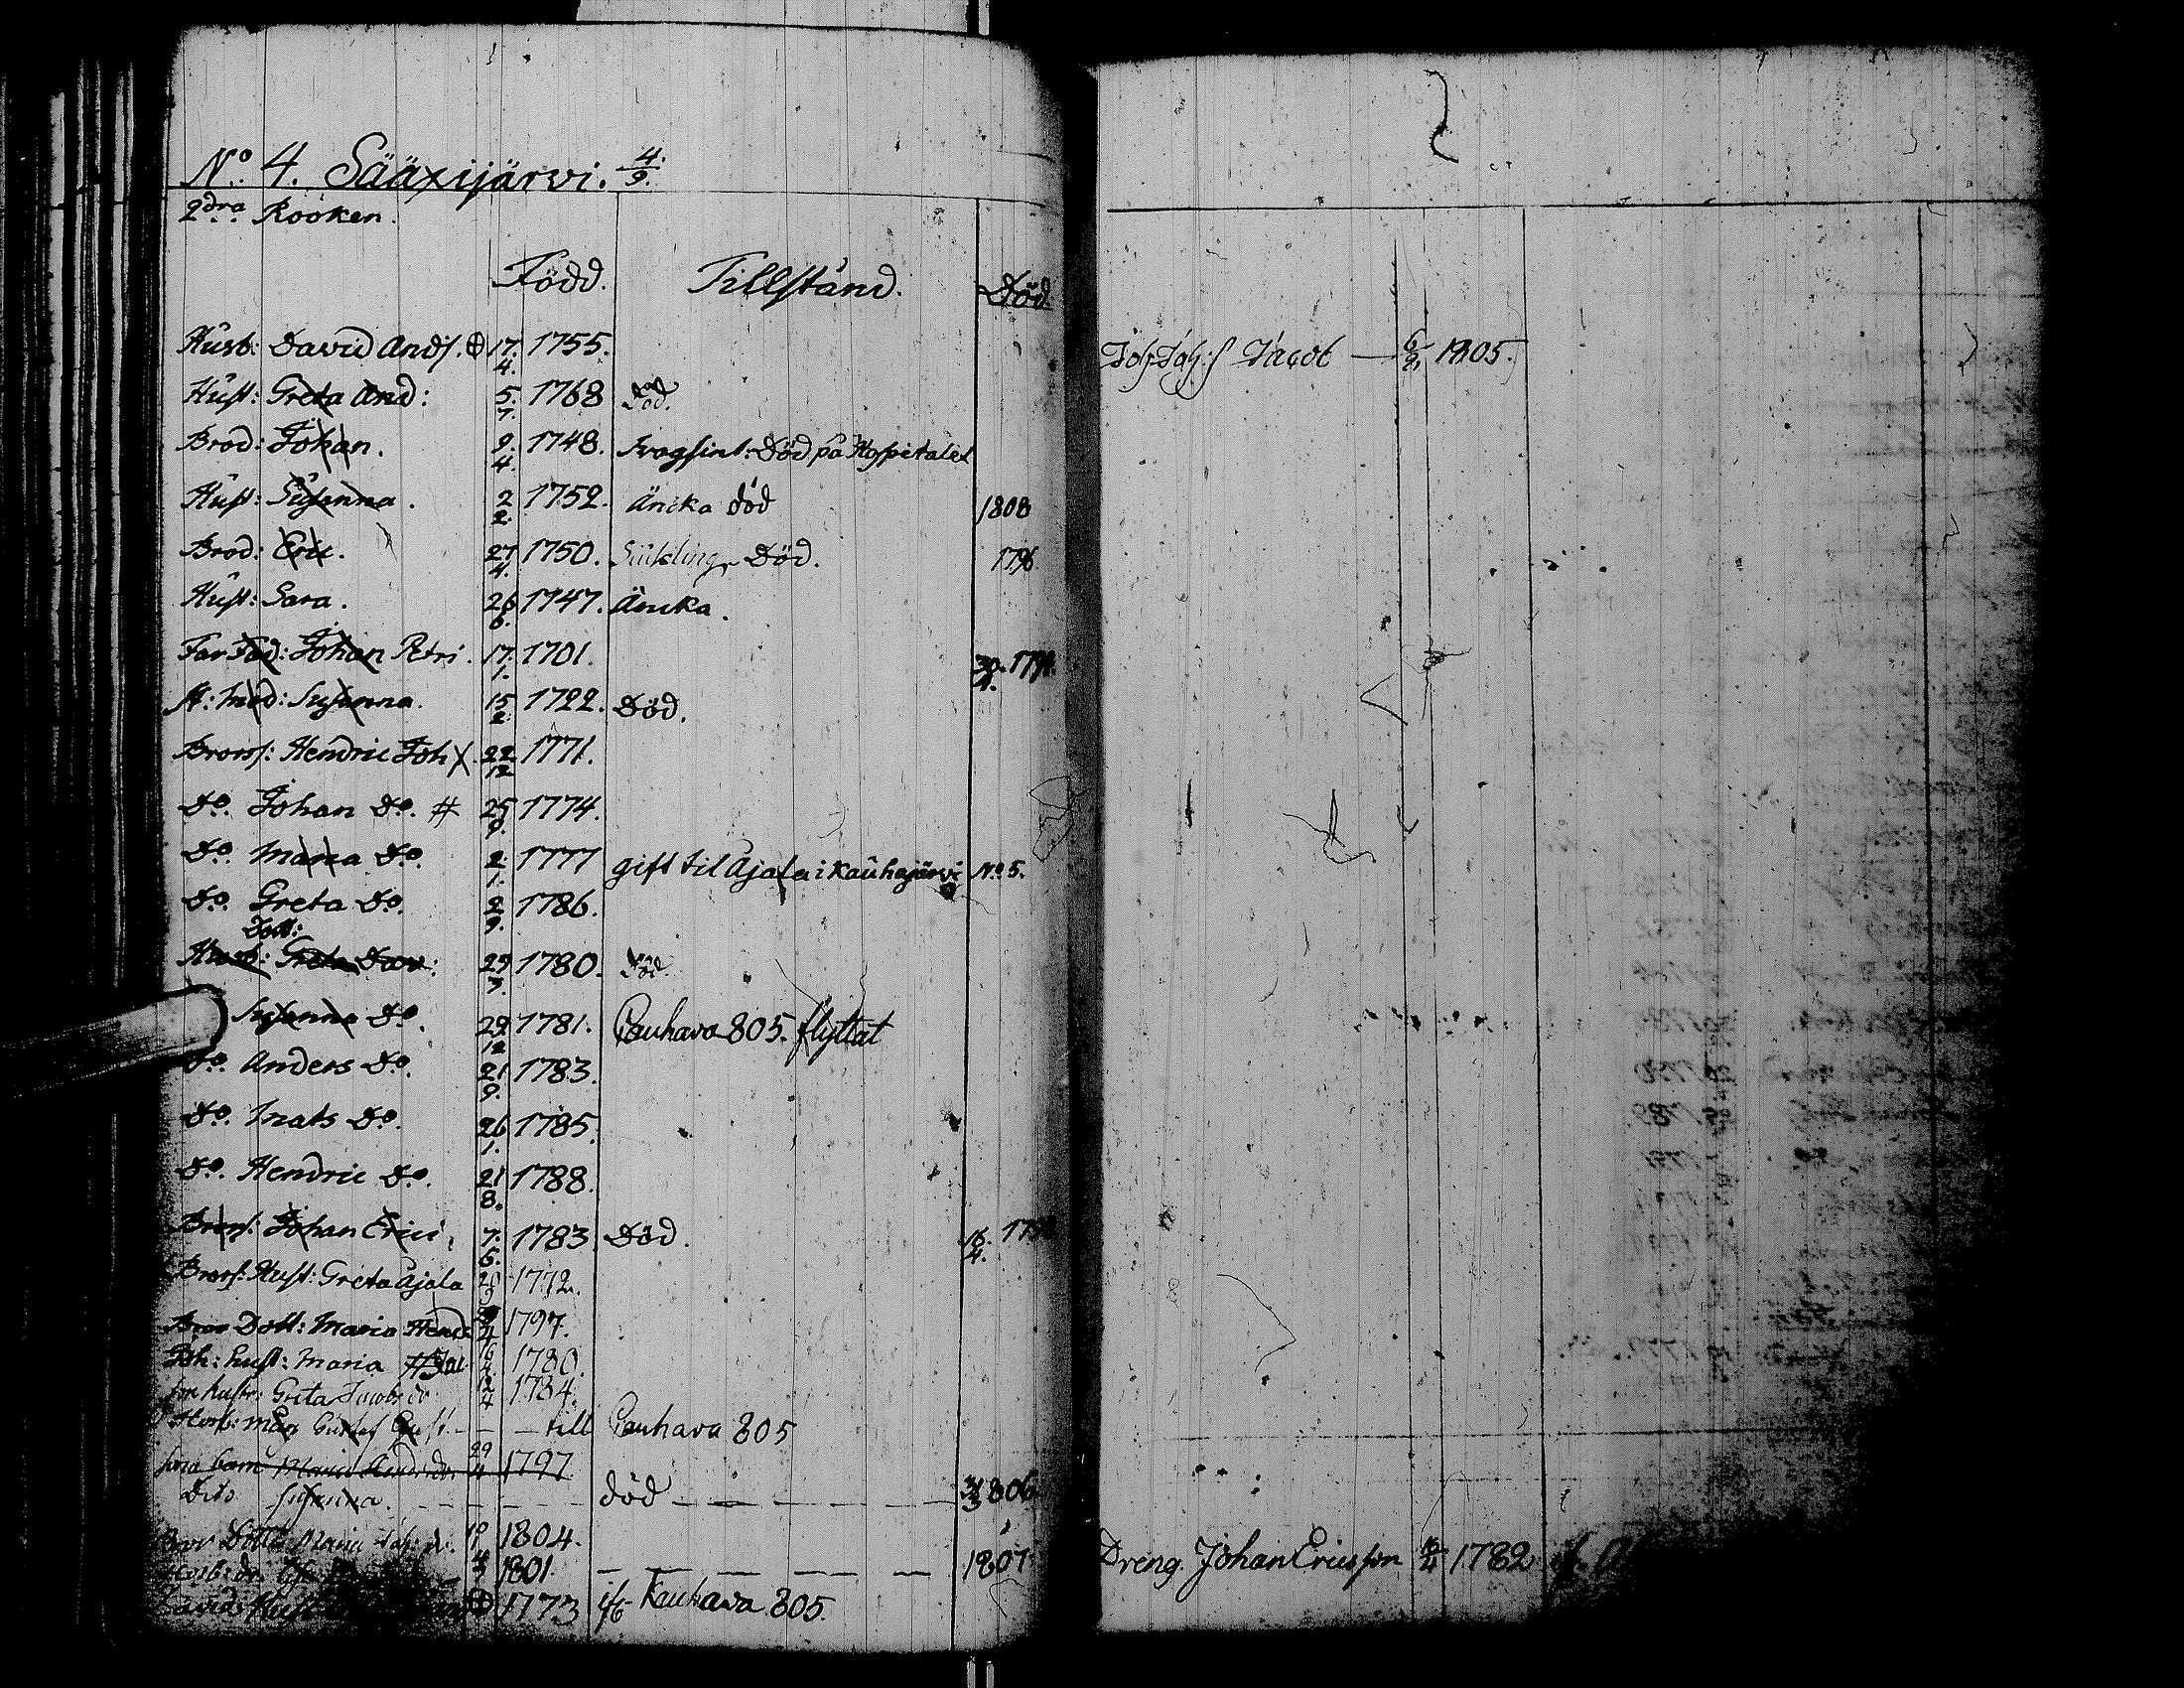 No. 4. Sääxijärvi. 4./9.
2dra Rooken.
Född. Tillstånd. Död.
Husb: David Ands. 17./4. 1755.
Hust: Greta And: 5./7. 1768 Död.
Brod: Johan. 9./4. 1748. Svagsint: Död på Hospitalet
Hust: Susanna. 2/2. 1752. Äncka död 1808
Brod: Eric. 27/4. 1750. Död. 1796
Hust: Sara. 26/6. 1747. Äncka.
Far Fad: Johan Petri. 17./1. 1701. 30./4.
St: mod: Susanna. 15/2. 1722. Död.
Brors: Hendric Joh 22/12 1771.
Do. Johan Do. # 25/9. 1774.
Do. Maria Do. 2./1. 1777 gift til Äjala i Kauhajärvi No. 5.
Do. Greta Do. 2/9. 1786.
Dott:
Husb: Greta Dav: 29/3. 1780. Död.
Susanna Do. 29./12 1781. Cauhava 805. flyttat
Do. Anders Do. 21/9. 1783.
Do. Mats Do. 26/1. 1785.
Do. Hendric Do. 21/8. 1788.
Brors: Johan Erici, 7./6. 1783. Död. 16./4.
Brors: Hust: Greta Äjala 1772.
Bror Dott: Maria Hend: 1797.
Joh: hust: Maria 16/4. 1780.
Son hustr: Greta Jacobs dr 12/4 1784.
Husb: Mån Gustaf Gust. — — till Cauhava 805
Maria 29/4 1797
Dito Susanna. — — — död — — — 806
Bror Dottr Maria Joh: dr. 1804.
1801. — — — 1807
Davids Hust 1773 Kauhava 805.
Joh Joh: s Jacob — 1805.
Dreng. Johan Ericsson 1782